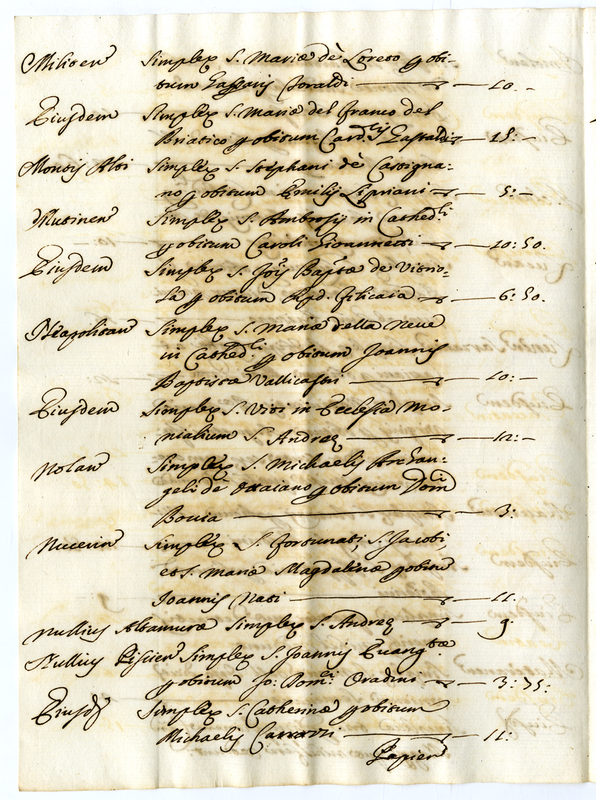 Militen Simplex S. Mariæ dè Loreto p obi-
tum Gasparis Joraldi — 10. -
Eiusdem Simplex S. Mariæ del franco del
Briatico p obitum Card.lis Gastaldi — 15: -
Montis Alti Simplex S. Stephani dè Castigna-
no p obitum Emilij Cipriani — 5: -
Mutinen Simplex S. Ambrosij in Cathed.li
p obitum Caroli Gionnetti — 10: 50.
Eiusdem Simplex S. Jois Baptæ de Vinio-
la p obitum Filicaia — 6: 50.
Neapolitan Simplex S. Mariæ della Neve
in Cathed.li p obitum Joannis
Baptistæ Vallicastri — 10: -
Eiusdem Simplex S. Viti in Ecclesia Mo-
nialium S. Andreæ — 12: -
Nolan Simplex S. Michaelis Archan-
geli dè Ottaiano p obitum Domi
Bovia — 3:
Nucerin Simplex S. Fortunati, S. Jacobi,
et S. Mariæ Magdalenæ p obitu
Joannis Nati — 11.
Nullius Altamuræ Simplex S. Andreæ — 9.
Nullius Piscien Simplex S. Joannis Evangtæ
p obitum Jo: Domci Oradini — 3: 75:
Eiusd Simplex S. Catherinæ p obitum
Michaelis — 11:
Papien